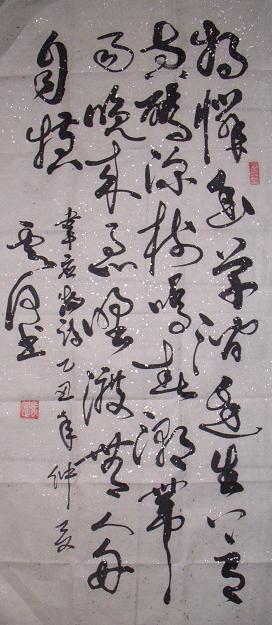 独憐幽草澗邊生上有
黄鸝深樹鳴春潮帶
雨晚来急野渡無人舟
自横
韋应物詩乙丑年仲夏
书